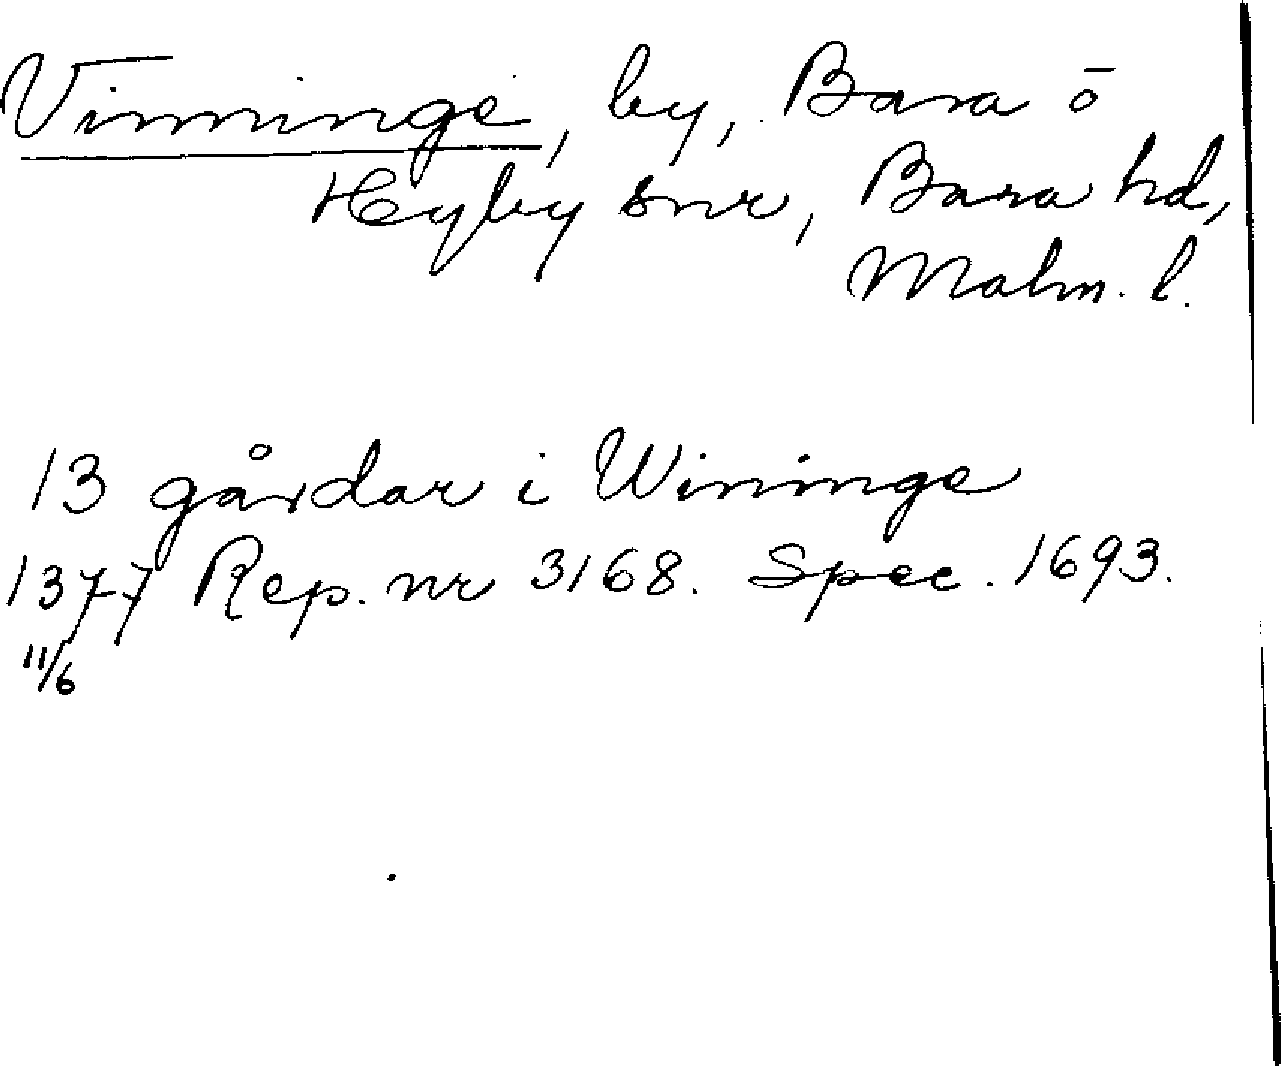 Vinninge, by, Bara o
Hyby snr, Bara hd,
Malm. l.
13 gårdar i Wininge
1377 Rep. nr 3168. Spec. 1693.
11/6